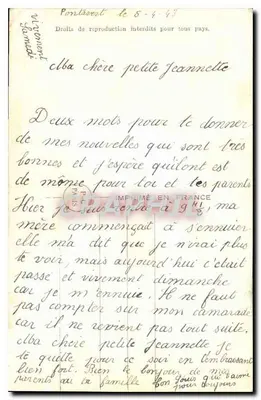 Pontivy le 5-4-43
vivement
Samedi
Droits de reproduction interdits pour tous pays.
Ma chère petite Jeannette
Deux mots pour te donner
de mes nouvelles qui sont très
bonnes et j'espère qu'il ont est
de même pour toi et tes parents
IMPRIMÉ EN FRANCE
Hier je suis ma
mère commençait à s'ennuier
elle m'a dit que je n'irai plus
te voir, mais aujourd'hui c'était
passé et vivement dimanche
car je m'ennuie. Il ne faut
pas compter sur mon camarade
car il ne revient pas tout suite.
Ma chère petite Jeannette je
te quitte pour ce soir en t'embrassant
bien fort. Bien le bonjour de mes
parents au ta famille Ton Louis qui t'aime
pour toujours